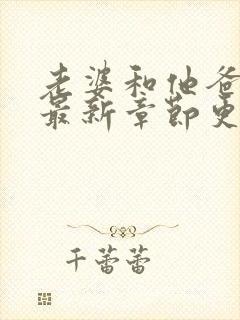 老婆和他爸
最新章节更
千蕾蕾